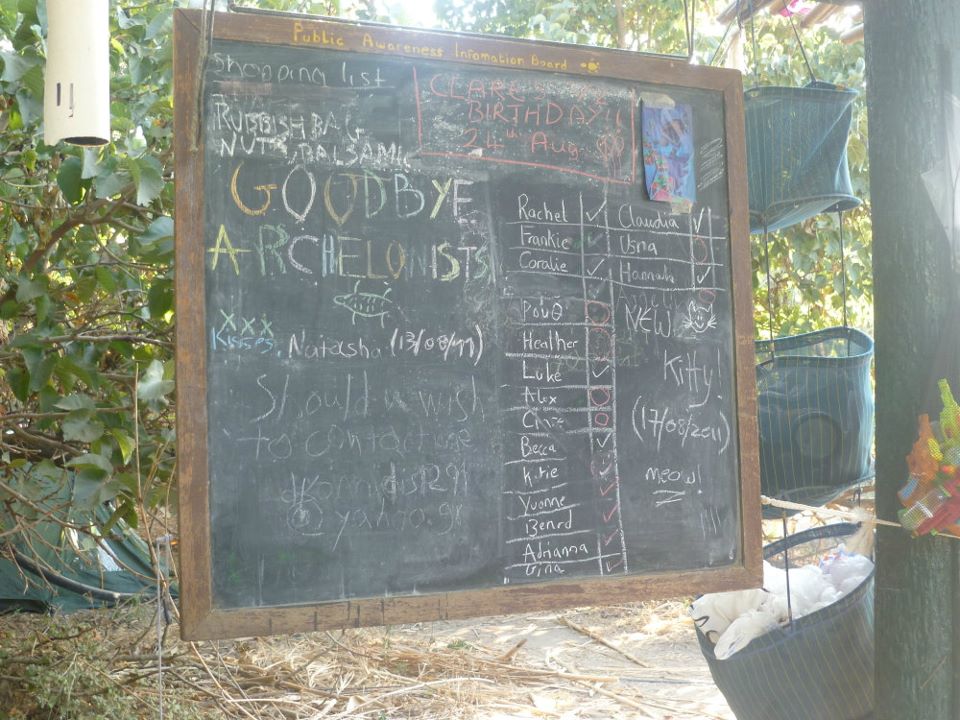 Public Awareness Infomation Board
Shopping list
RUBBISH BAG
NUTS, BALSAMIC
CLARE'S
BIRTHDAY!!
24th Aug
GOODBYE
ARCHELONISTS
xxx
Kisses, Natasha (13/08/11)
Should u wish
to contact me
@yahoo.gr
Rachel ✓
Frankie
Coralie ✓
Heather
Luke ✓
Alex
Becca ✓
Katie
Yvonne ✓
Benard ✓
Adrianna
Gina ✓
Claudia ✓
Usna
Hannah ✓
NEW
Kitty!
(17/08/2011)
meow!